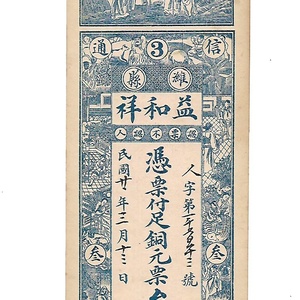 信 3 通
濰縣
益和祥
認票不認人
憑票付足銅元票
人字第 號
民國廿一年三月十三日
叁 叁